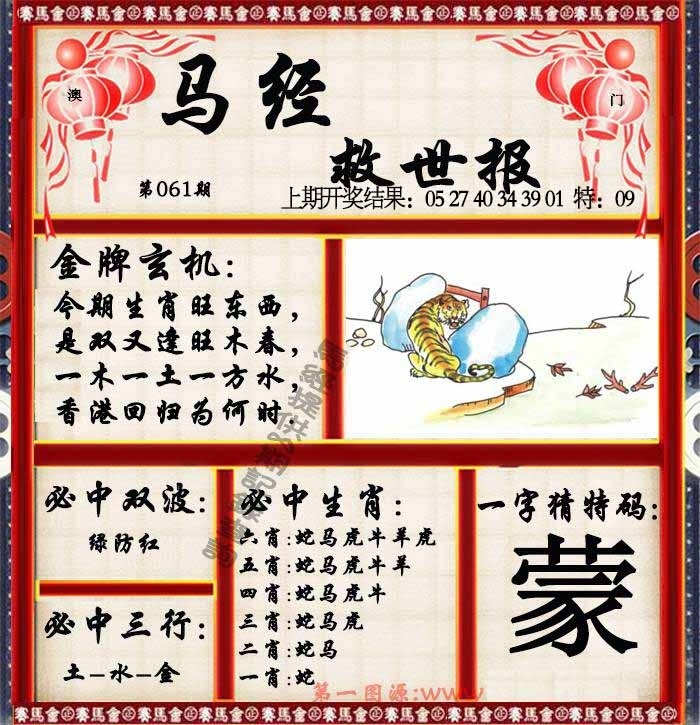 金馬賽正金馬賽正金馬賽正金馬賽正金馬賽
澳
门
马经
救世报
第061期
上期开奖结果：05 27 40 34 39 01 特：09
金牌玄机：
今期生肖旺东西，
是双又逢旺木春，
一木一土一方水，
香港回归为何时.
必中双波：
绿防红
必中三行：
土-水-金
必中生肖：
六肖：蛇马虎牛羊虎
五肖：蛇马虎牛羊
四肖：蛇马虎牛
三肖：蛇马虎
二肖：蛇马
一肖：蛇
一字猜特码：
蒙
第一图源:www